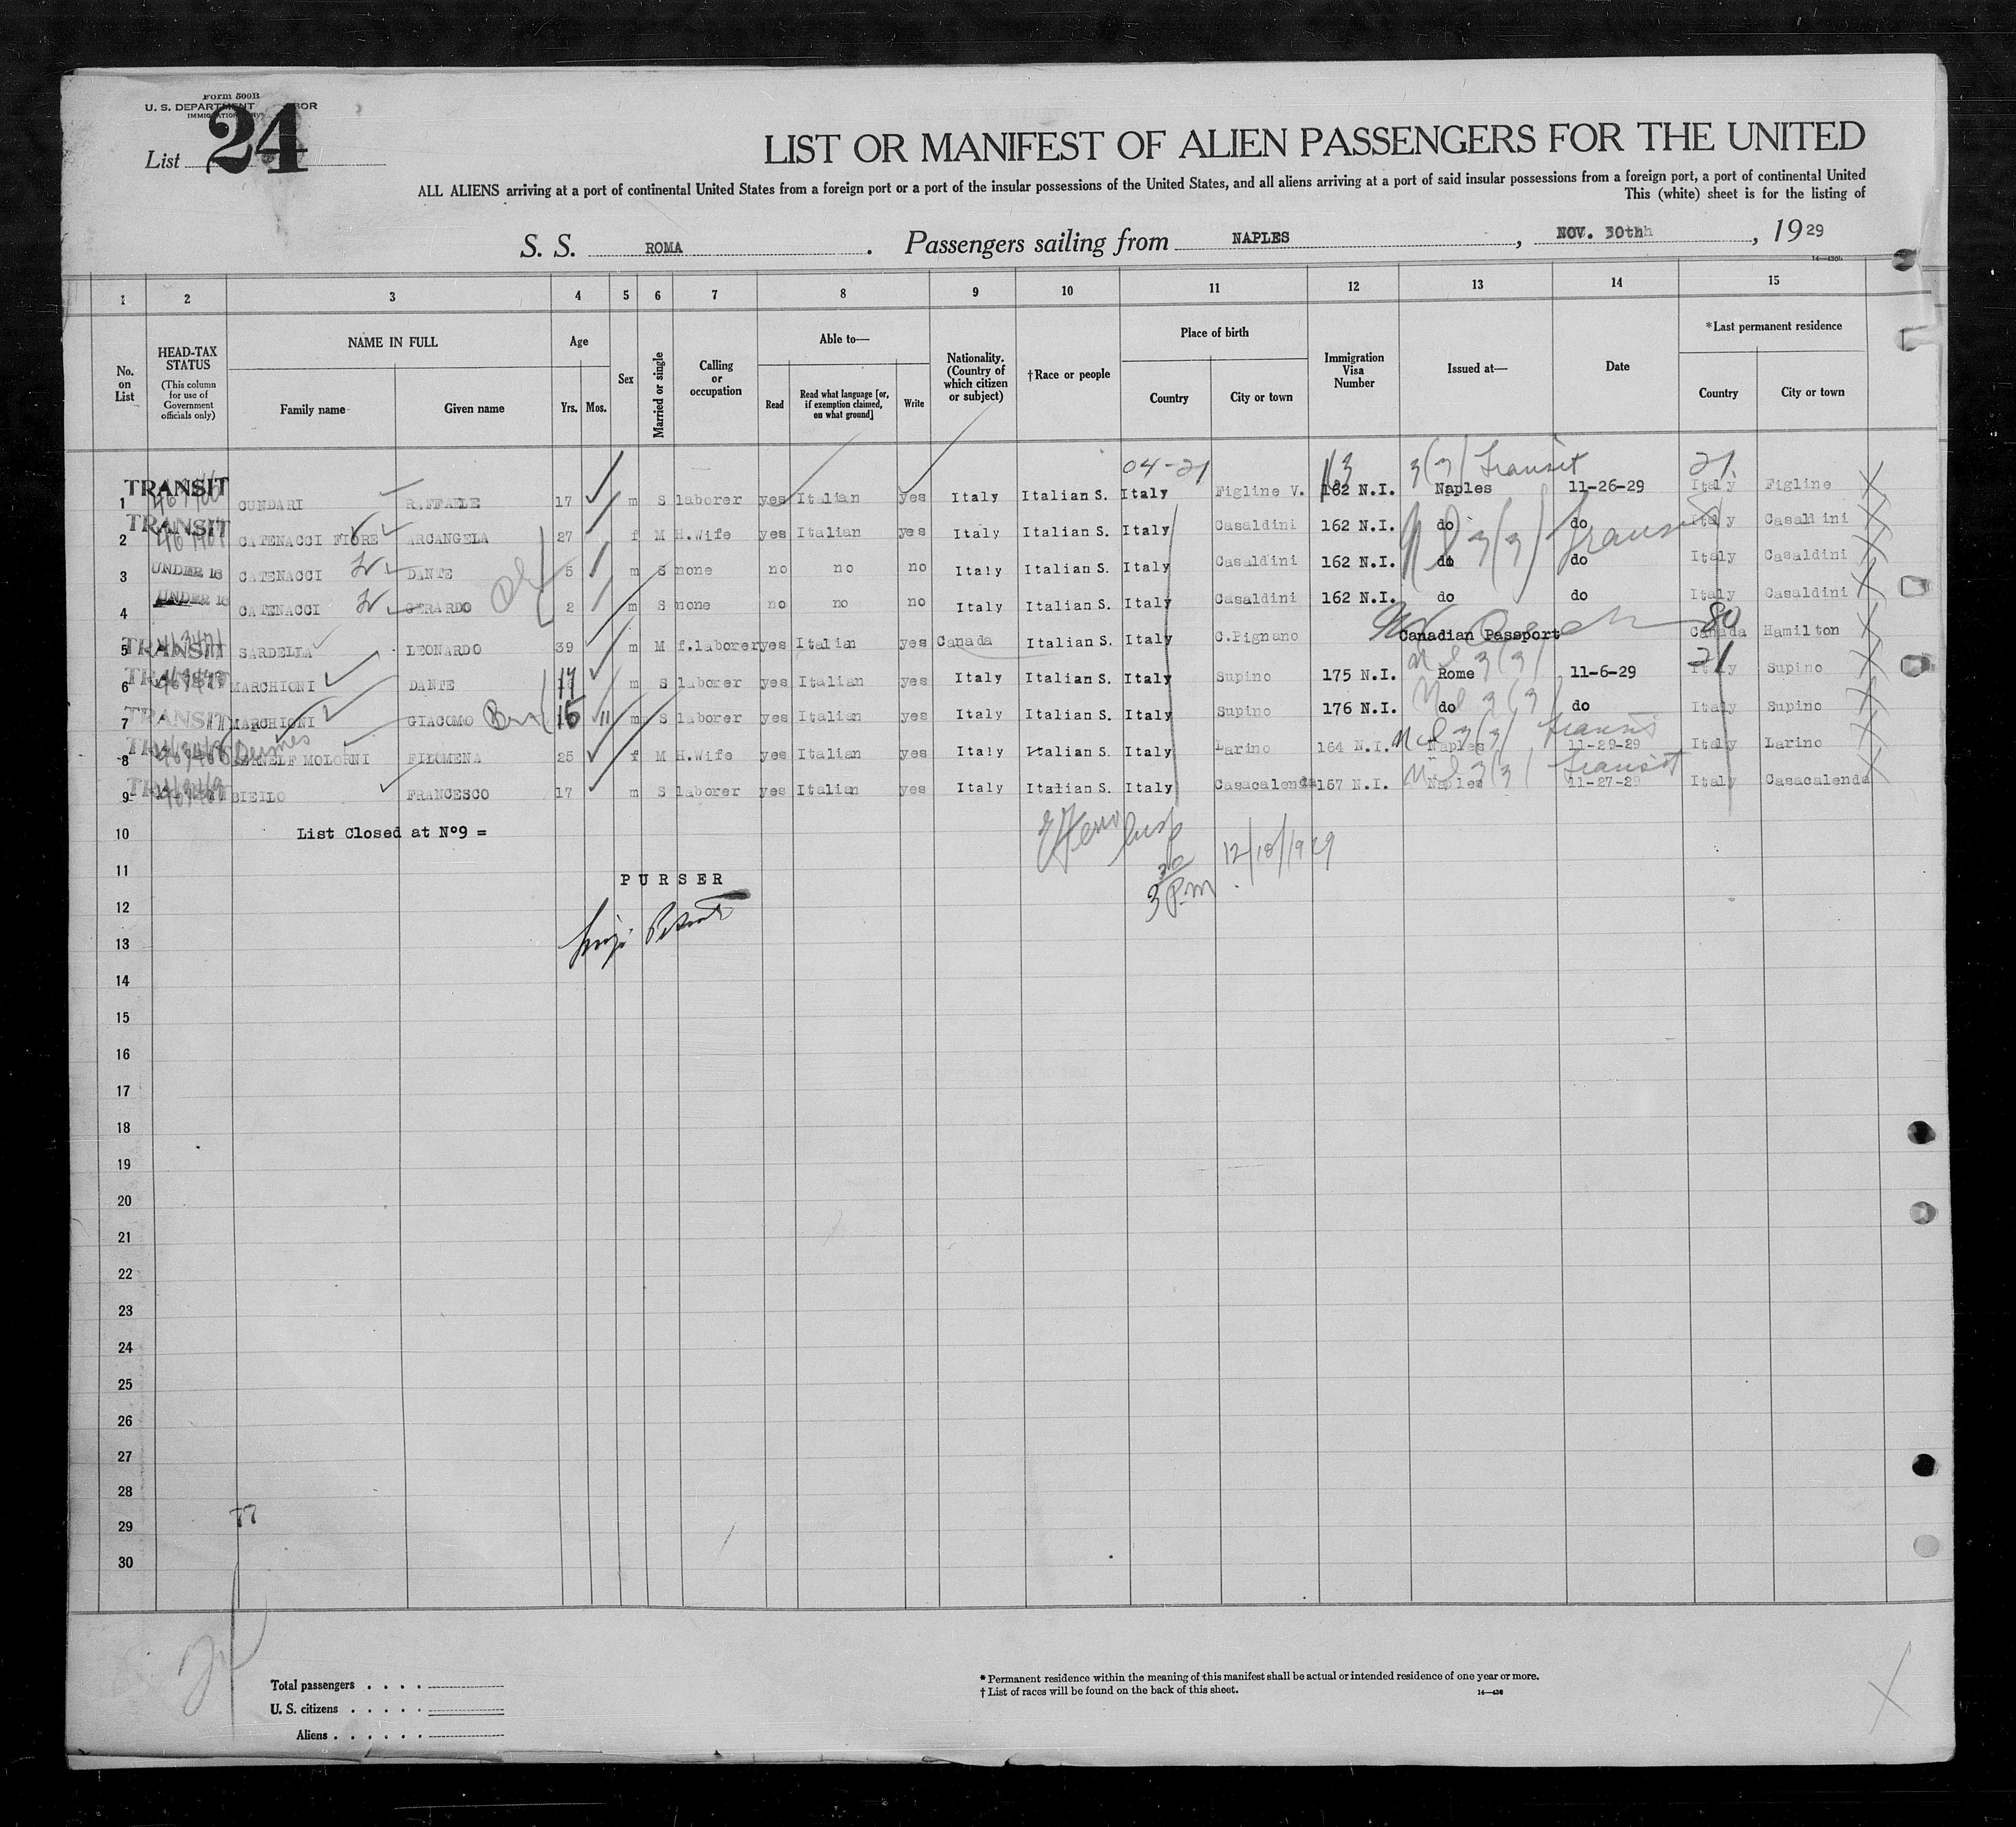 Form 500B
U. S. DEPARTMENT
List 24
LIST OR MANIFEST OF ALIEN PASSENGERS FOR THE UNITED
ALL ALIENS arriving at a port of continental United States from a foreign port or a port of the insular possessions of the United States, and all aliens arriving at a port of said insular possessions from a foreign port, a port of continental United
This (white) sheet is for the listing of
S. S. ROMA. Passengers sailing from NAPLES, NOV. 30th, 1929
14—430b
1 2 3 4 5 6 7 8 9 10 11 12 13 14 15
No. on List
HEAD-TAX STATUS (This column for use of Government officials only)
NAME IN FULL
Family name Given name
Age
Yrs. Mos.
Sex
Married or single
Calling or occupation
Able to—
Read
Read what language [or, if exemption claimed, on what ground]
Write
Nationality. (Country of which citizen or subject)
†Race or people
Place of birth
Country City or town
Immigration Visa Number
Issued at—
Date
*Last permanent residence
Country City or town
04-21 3(3) Transit 21
1 TRANSIT CUNDARI RAFFAELE 17 m S laborer yes Italian yes Italy Italian S. Italy Figline V. 162 N.I. Naples 11-26-29 Italy Figline
2 TRANSIT CATENACCI FIORE ARCANGELA 27 f M H.Wife yes Italian yes Italy Italian S. Italy Casaldini 162 N.I. do do Transit Italy Casaldini
3 UNDER 16 CATENACCI DANTE 5 m S none no no no Italy Italian S. Italy Casaldini 162 N.I. do do Italy Casaldini
4 UNDER 16 CATENACCI GERARDO 2 m S none no no no Italy Italian S. Italy Casaldini 162 N.I. do do Italy Casaldini
5 TRANSIT SARDELLA LEONARDO 39 m M f.laborer yes Italian yes Canada Italian S. Italy C.Pignano Canadian Passport 80 Canada Hamilton
6 TRANSIT MARCHIONI DANTE 17 m S laborer yes Italian yes Italy Italian S. Italy Supino 175 N.I. Rome 3(3) 11-6-29 21 Italy Supino
7 TRANSIT MARCHIONI GIACOMO 15 11 m S laborer yes Italian yes Italy Italian S. Italy Supino 176 N.I. do 3(3) do Italy Supino
8 MOLORNI FILOMENA 25 f M H.Wife yes Italian yes Italy Italian S. Italy Larino 164 N.I. Naples 3(3) Transit 11-29-29 Italy Larino
9 BIELLO FRANCESCO 17 m S laborer yes Italian yes Italy Italian S. Italy Casacalenda 157 N.I. Naples 3(3) Transit 11-27-29 Italy Casacalenda
10 List Closed at Nº9 =
12/10/1929
11 PURSER
3 P.M
12
13
14
15
16
17
18
19
20
21
22
23
24
25
26
27
28
29
30
Total passengers . . . .
U. S. citizens . . . . .
Aliens . . . . . .
* Permanent residence within the meaning of this manifest shall be actual or intended residence of one year or more.
† List of races will be found on the back of this sheet.
14—430